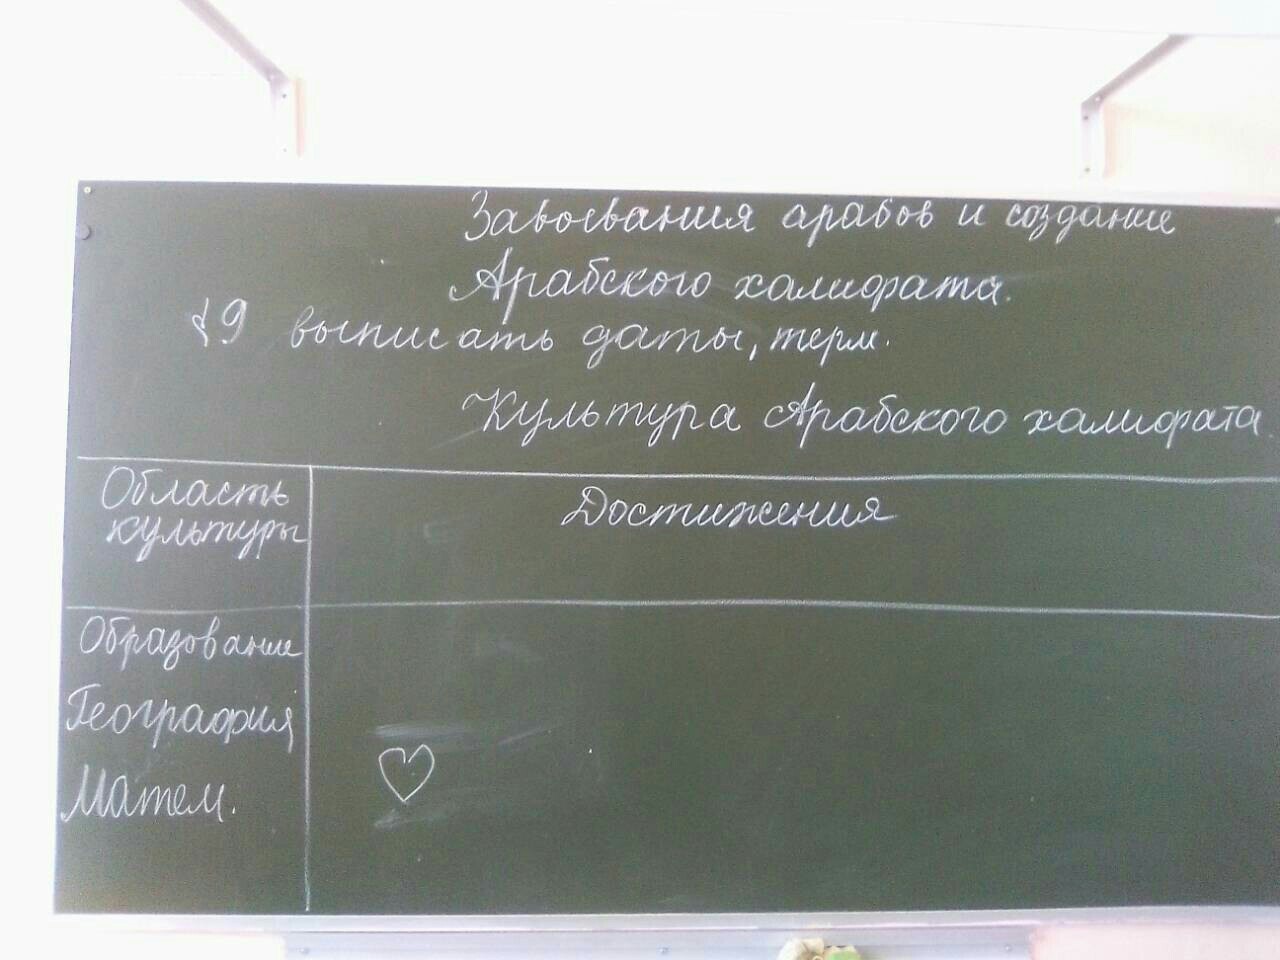 Завоевания арабов и создание
Арабского халифата.
§9 выписать даты, терм.
Культура Арабского халифата.
Область
культуры
Достижения
Образование
География
Матем.